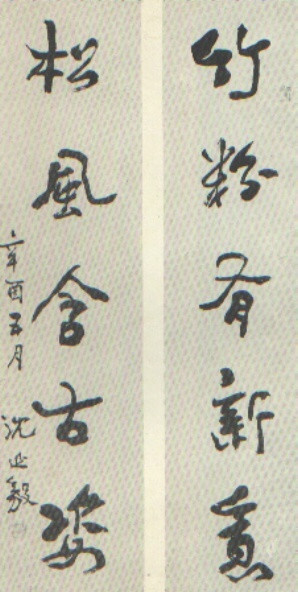 竹粉有新意
松風含古姿
辛酉五月
沈延毅